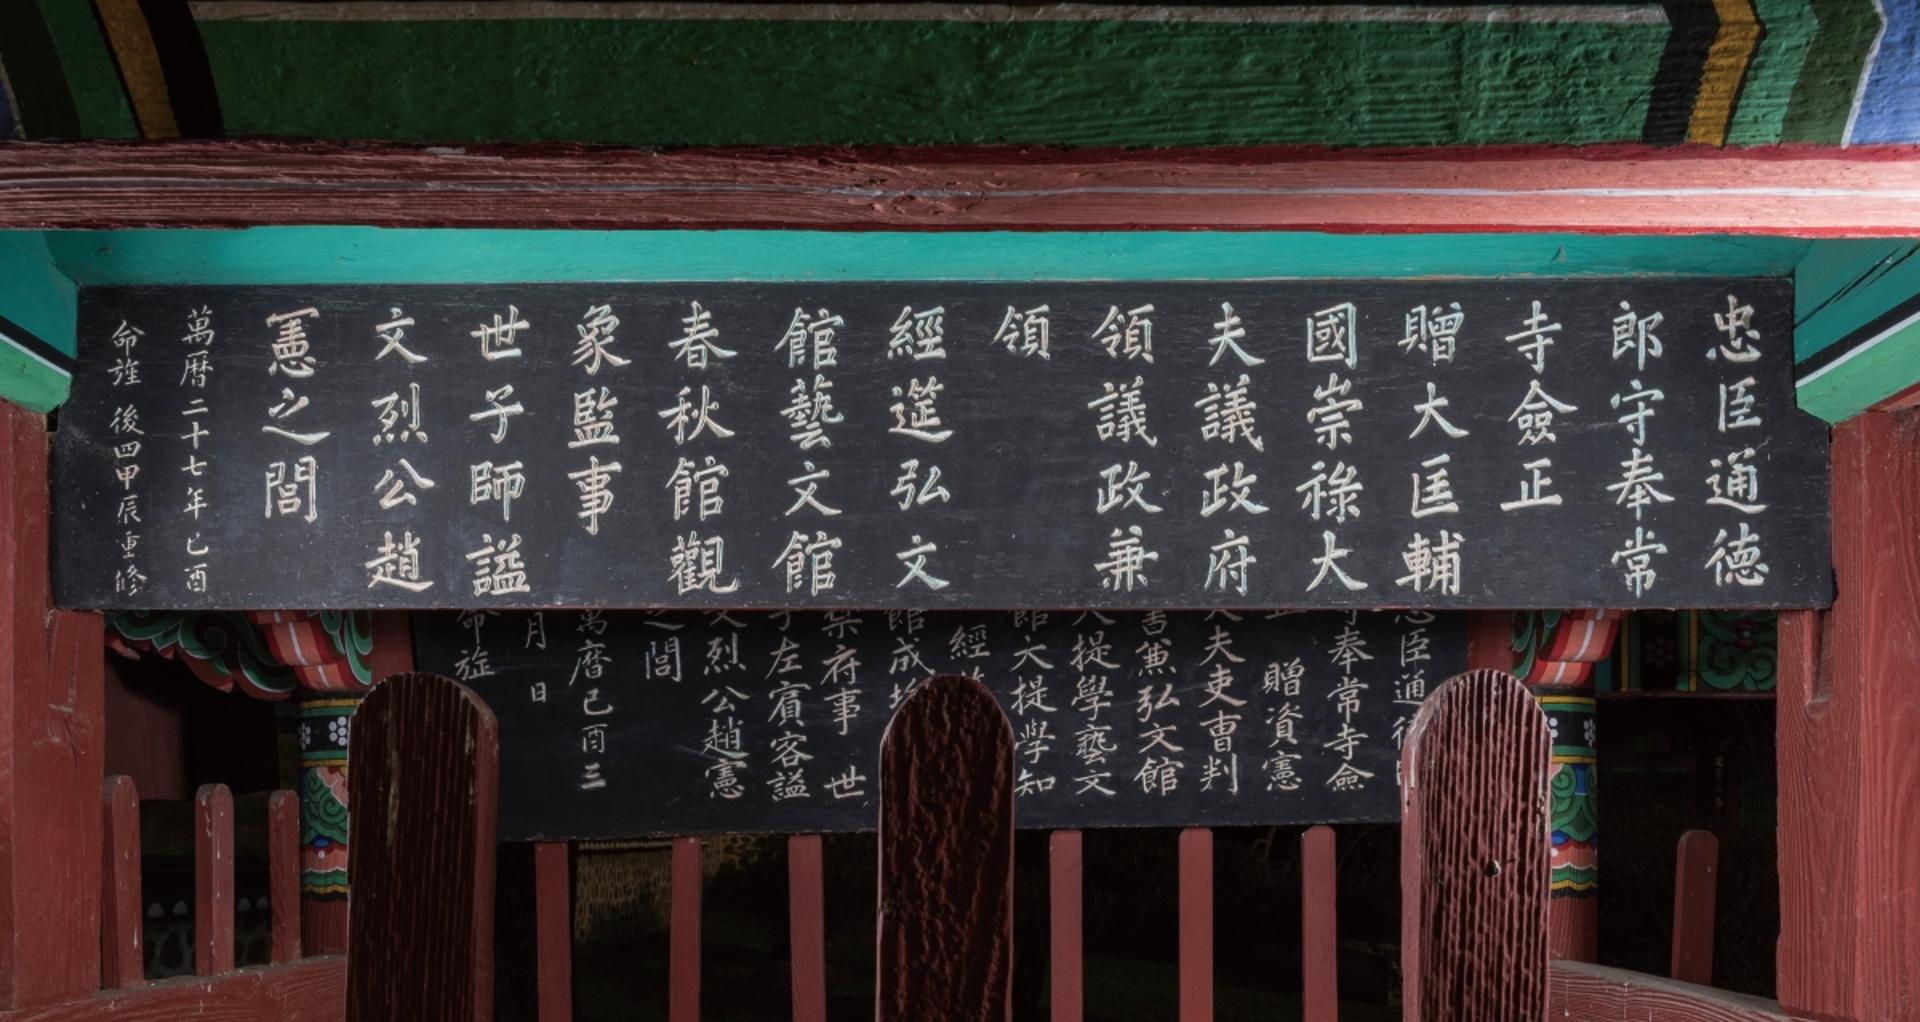 忠臣通德
郎守奉常
寺僉正
贈大匡輔
國崇祿大
夫議政府
領議政兼
領
經筵弘文
館藝文館
春秋館觀
象監事
世子師諡
文烈公趙
憲之閭
萬曆二十七年己酉
命旌 後四甲辰重修
忠臣通德
奉常寺僉
贈資憲
夫吏曹判
書兼弘文館
提學藝文
館大提學知
經
館成
府事 世
子左賓客諡
文烈公趙憲
之閭
萬曆己酉三
月 日
命旌